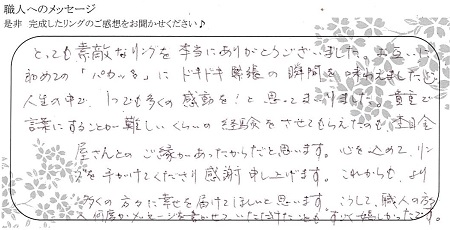 職人へのメッセージ
是非 完成したリングのご感想をお聞かせください♪
とっても素敵なリングを本当にありがとうございました。お互いに
初めての「パカッ」にドキドキ緊張の瞬間を味わえました
人生の中で、1つでも多くの感動を!と思ってまいりました。貴重で
言葉にすることが難しいくらいの経験をさせてもらえたのも、杢目金
屋さんとのご縁があったからだと思います。心を込めて、リン
グを手がけてくださり感謝申し上げます。これからも、より
多くの方々に幸せを届けてほしいと思います。こうして、職人の方
へ何度かメッセージを書かせていただけたことも、すっごく嬉しかったです。